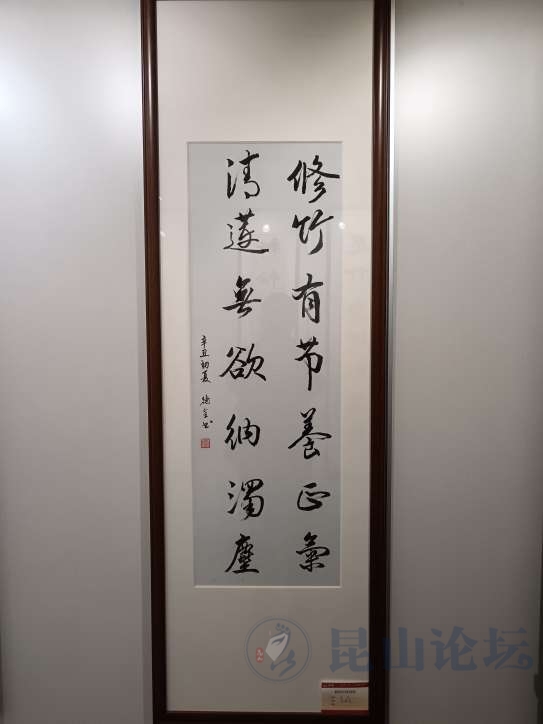 修竹有节養正氣
清蓮無欲纳濁塵
辛丑初夏
昆山论坛